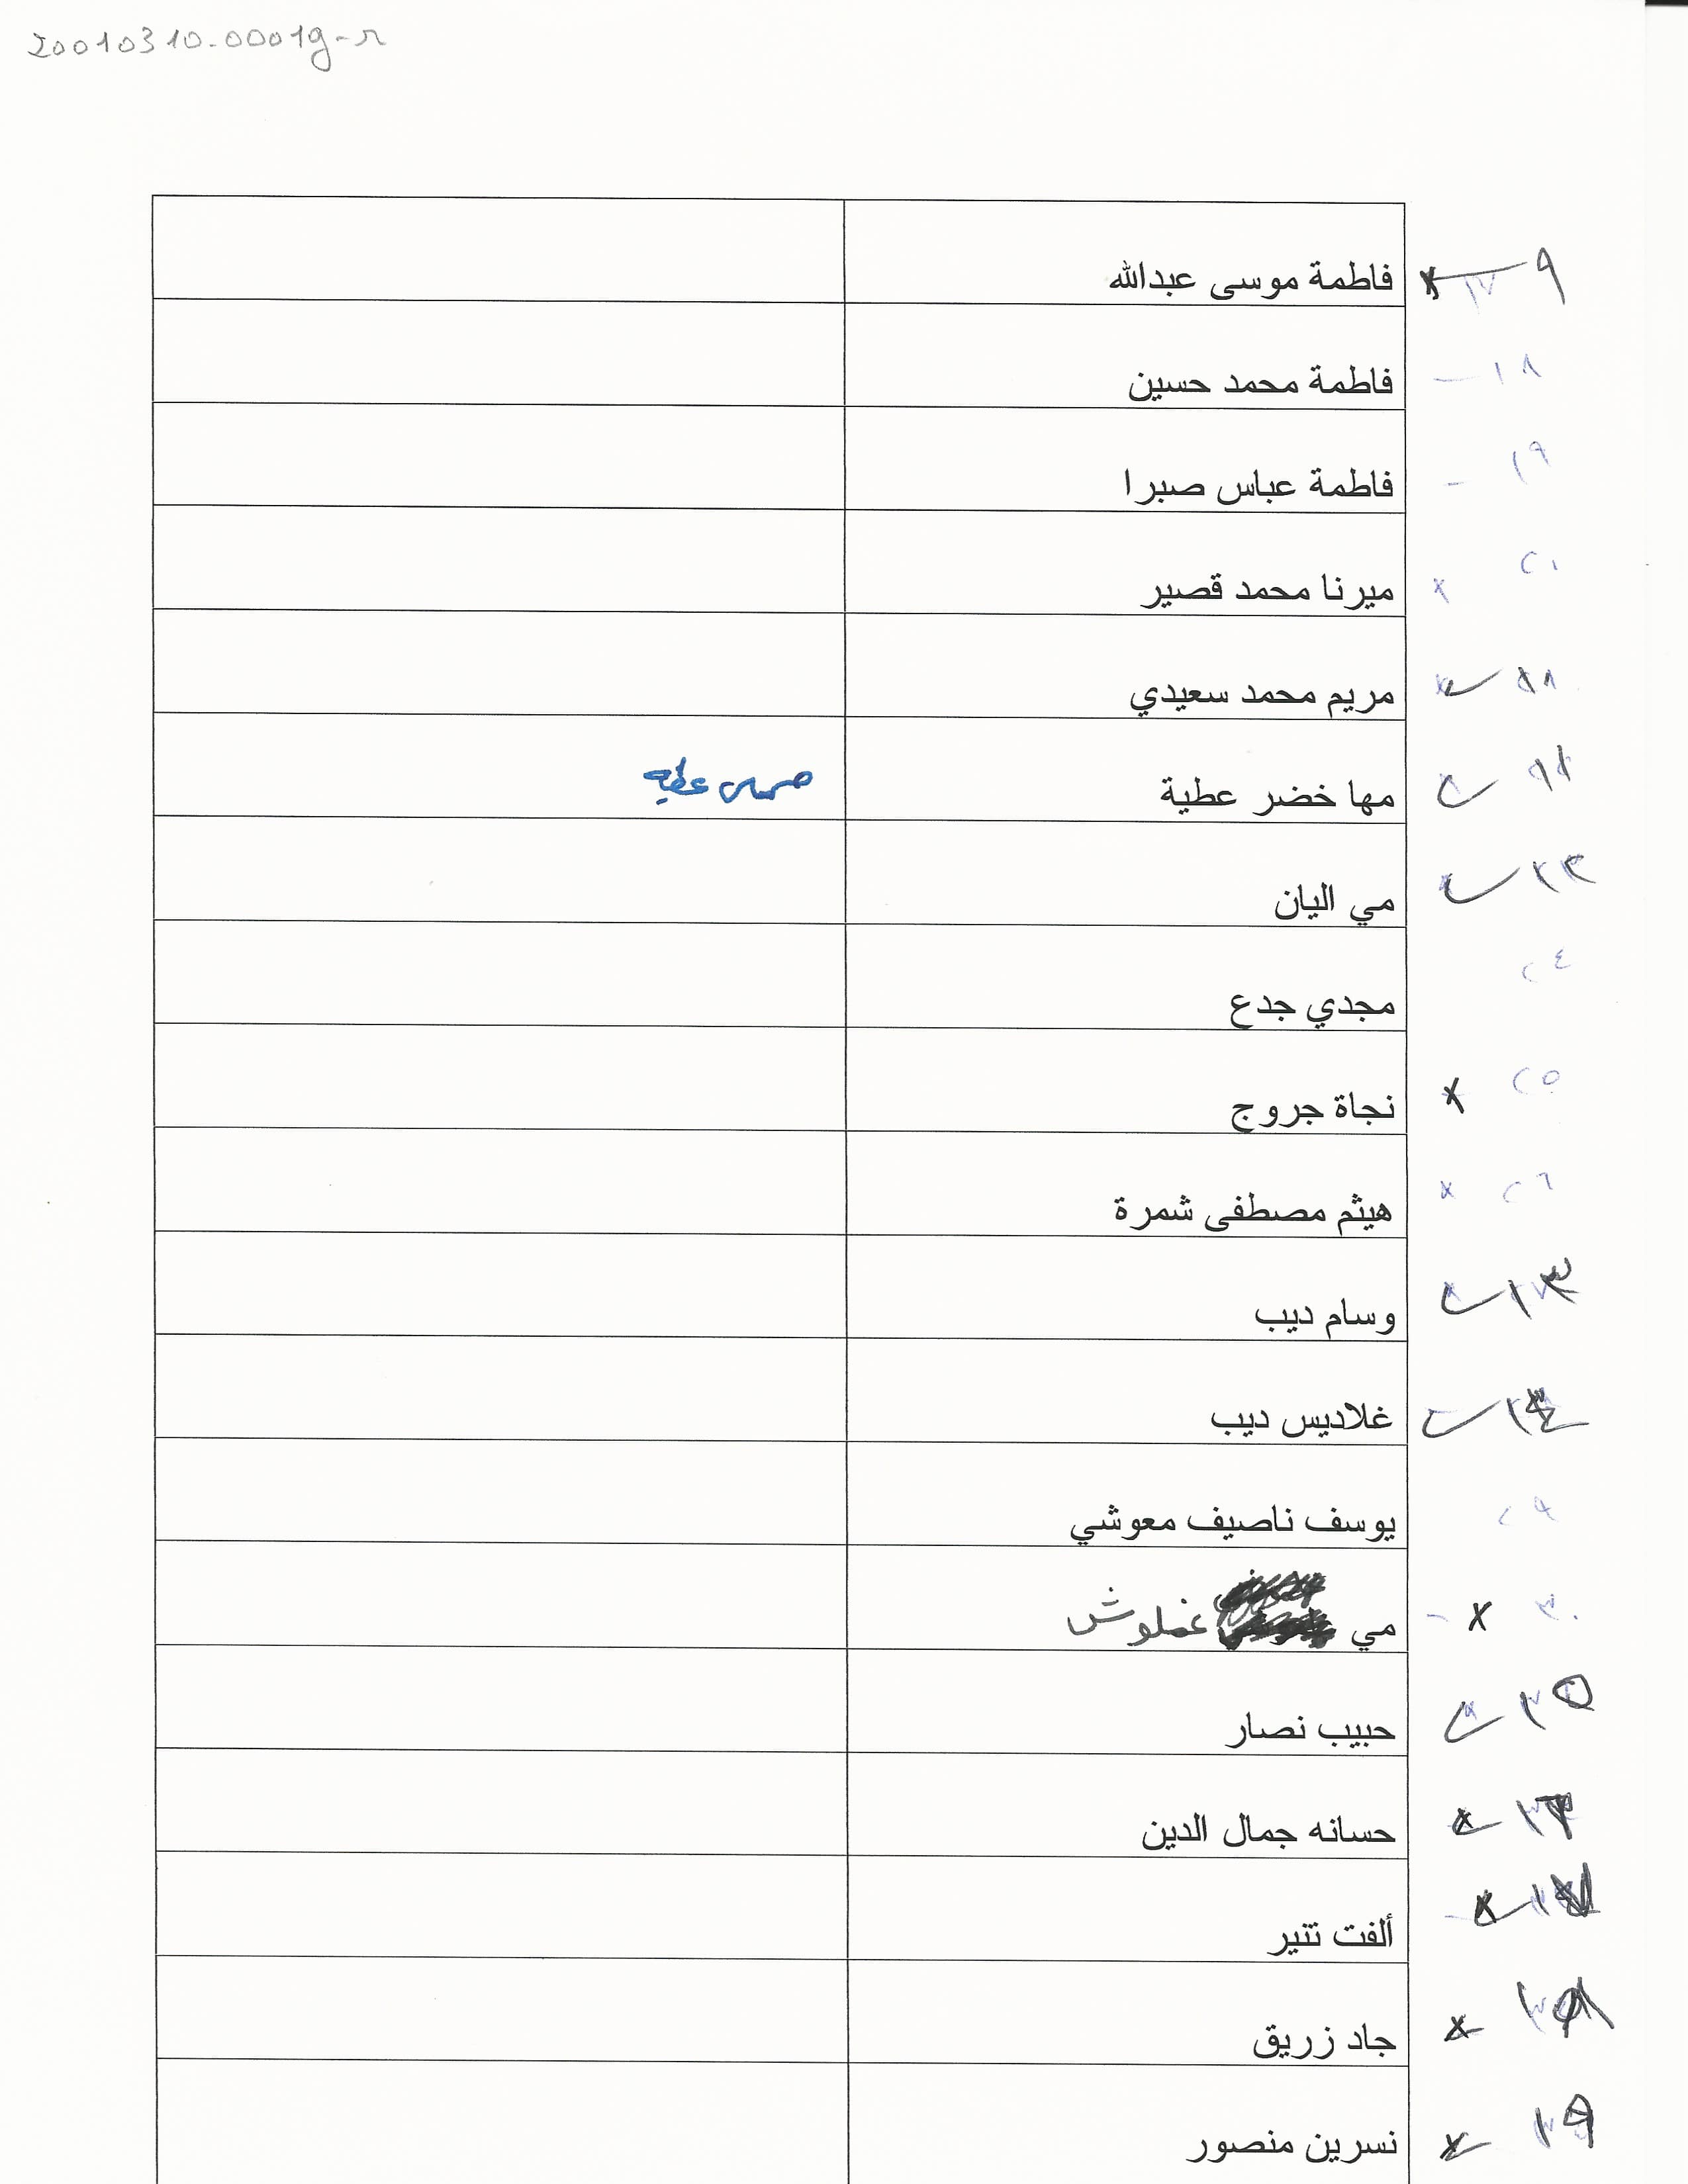 20010310-0001g-r
فاطمة موسى عبدالله ٩
فاطمة محمد حسين - ١٨
فاطمة عباس صبرا - ١٩
ميرنا محمد قصير x ٢٠
مريم محمد سعيدي
مها خضر عطية
عطيه
مي اليان
مجدي جدع ٢٤
نجاة جروج x ٢٥
هيثم مصطفى شمرة x ٢٦
وسام ديب ١٣
غلاديس ديب ١٤
يوسف ناصيف معوشي ٢٩
مي غملوش - x ٣٠
حبيب نصار ١٥
حسانه جمال الدين
ألفت تتير
جاد زريق
نسرين منصور x ١٩